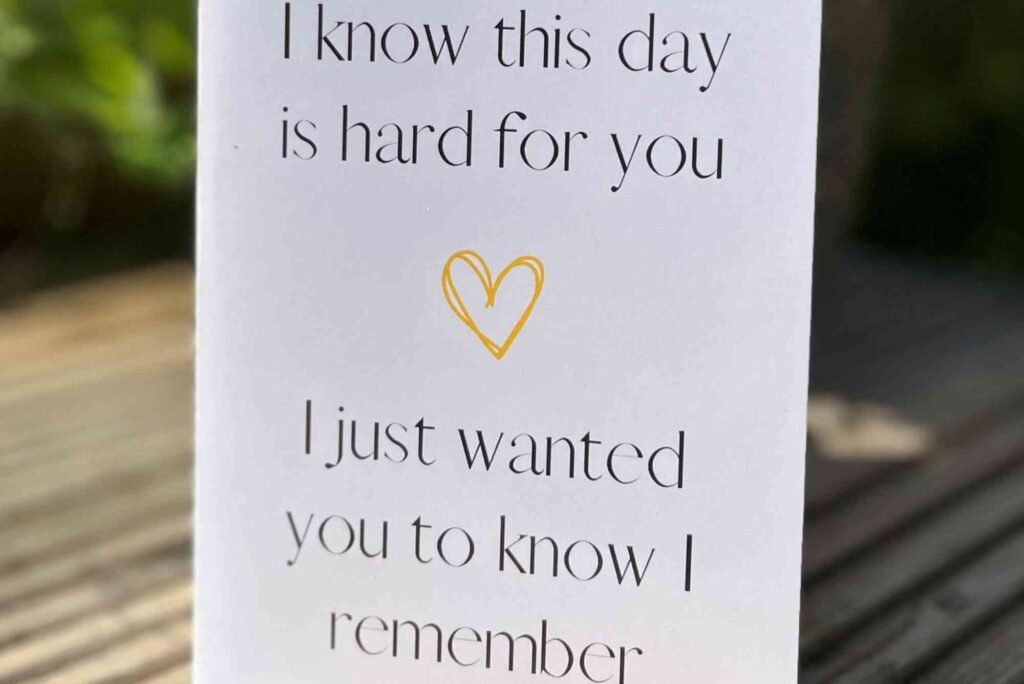 I know this day
is hard for you
I just wanted
you to know I
remember